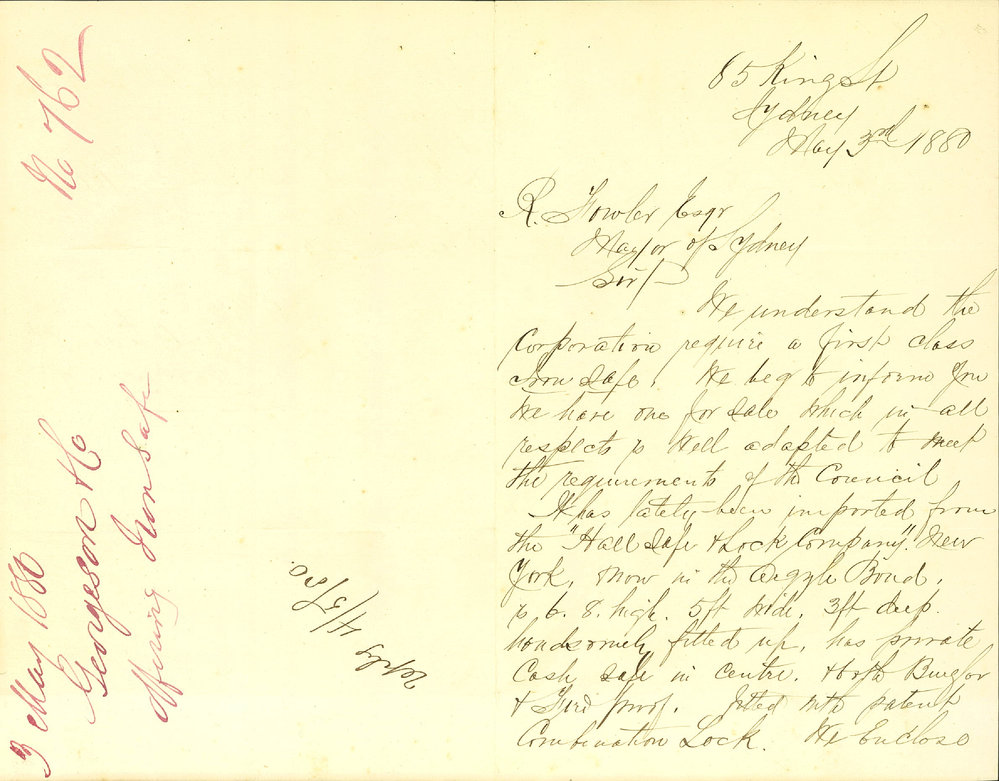 No 762
3 May 1880
Georgeson & Co
Offering Iron Safe
Reply 4/5/80.
85 King St
Sydney
May 3rd 1880
R. Fowler Esqr
Mayor of Sydney
Sir/
We understand the
Corporation require a first class
Iron Safe. We beg to inform you
We have one for sale which in all
respects is Well adapted to meet
the requirements of the Council
It has lately been imported from
the "Hall Safe & Lock Company". New
York, & now in the Argyle Bond.
is 6. 8. high. 5ft wide. 3ft deep.
handsomely fitted up, has private
Cash Safe in centre. & both Burglar
& Fire proof. fitted with patent
Combination Lock. We Enclose